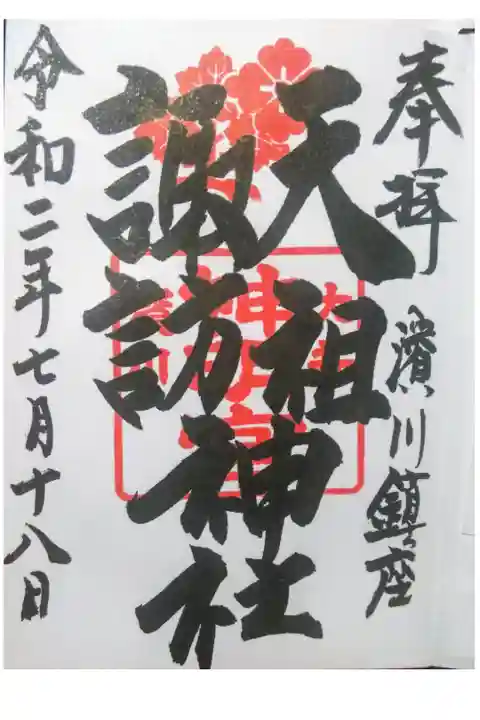 奉拝 濱川鎮座
天祖
諏訪神社
令和二年七月十八日
神明宮